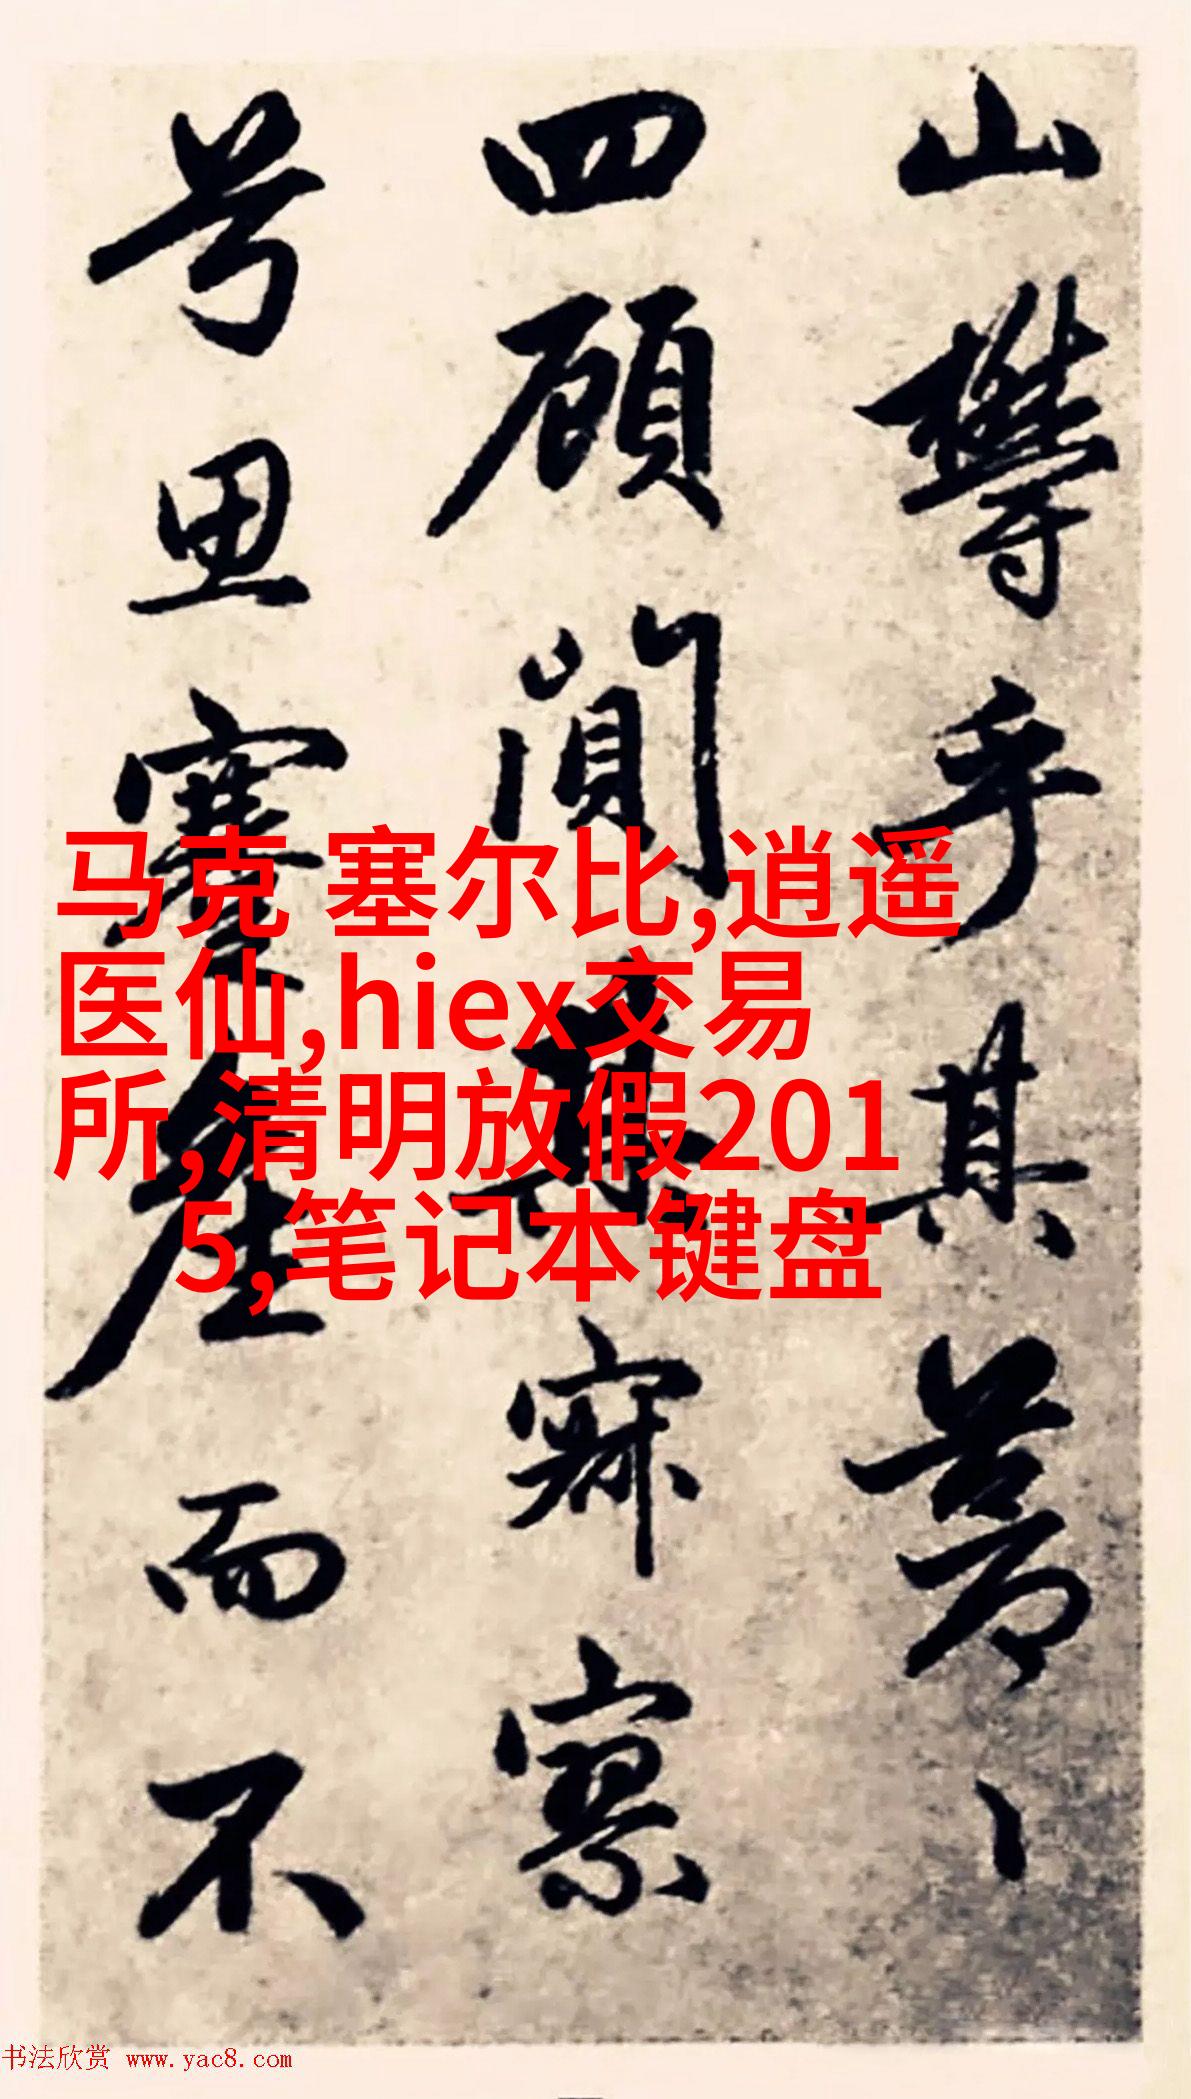 山欝乎其苍〻
四顾阒其寂寥
号思寒产而不
马克 塞尔比,逍遥
医仙,hiex交易
所,清明放假201
5,笔记本键盘
书法欣赏 www.yac8.com